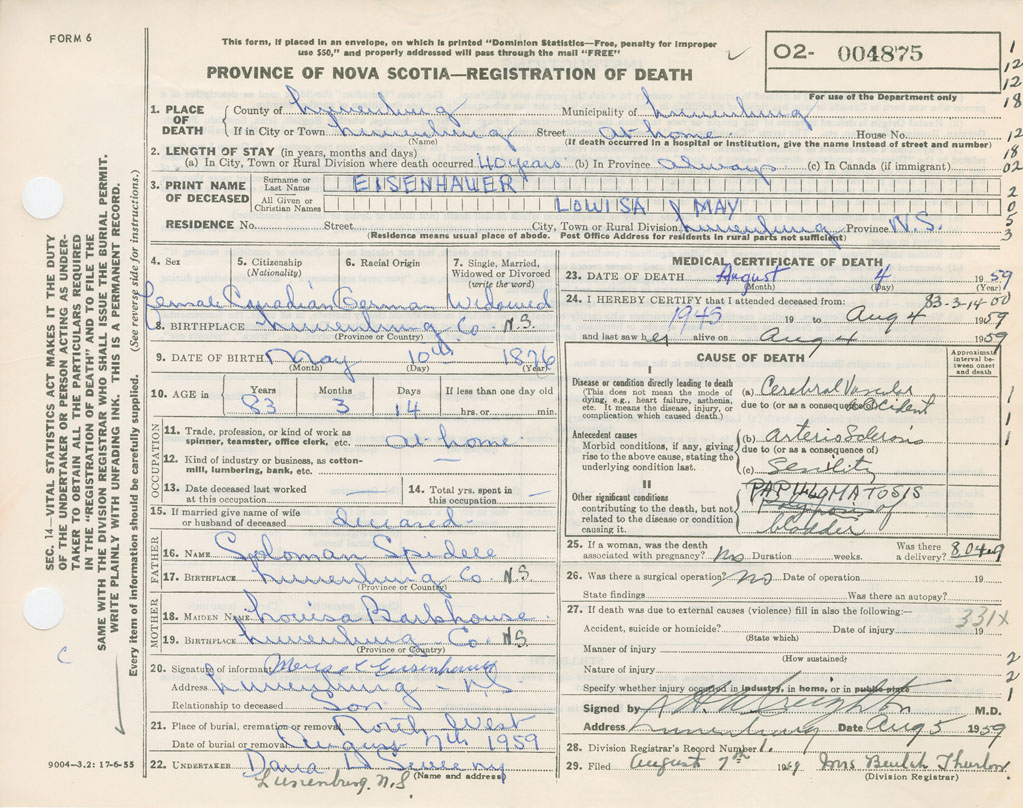 FORM 6
This form, if placed in an envelope, on which is printed "Dominion Statistics—Free, penalty for improper
use $50," and properly addressed will pass through the mail "FREE"
O2- 004875
For use of the Department only
PROVINCE OF NOVA SCOTIA—REGISTRATION OF DEATH
1. PLACE OF DEATH
County of Lunenburg Municipality of Lunenburg
If in City or Town Lunenburg Street at home House No.
(Name) (If death occurred in a hospital or institution, give the name instead of street and number)
2. LENGTH OF STAY (in years, months and days)
(a) In City, Town or Rural Division where death occurred 40 years (b) In Province always (c) In Canada (if immigrant)
3. PRINT NAME OF DECEASED
Surname or Last Name EISENHAUER
All Given or Christian Names LOUISA MAY
RESIDENCE No. Street City, Town or Rural Division Lunenburg Province N.S.
(Residence means usual place of abode. Post Office Address for residents in rural parts not sufficient)
4. Sex 5. Citizenship (Nationality) 6. Racial Origin 7. Single, Married, Widowed or Divorced (write the word)
Female Canadian German Widowed
8. BIRTHPLACE Lunenburg Co N.S.
(Province or Country)
9. DATE OF BIRTH May 10th 1876
(Month) (Day) (Year)
10. AGE in Years Months Days If less than one day old
83 3 14 hrs. or min.
OCCUPATION
11. Trade, profession, or kind of work as
spinner, teamster, office clerk, etc. at home
12. Kind of industry or business, as cotton-
mill, lumbering, bank, etc. —
13. Date deceased last worked
at this occupation —
14. Total yrs. spent in
this occupation —
15. If married give name of wife
or husband of deceased deceased
FATHER
16. NAME Soloman Spidell
17. BIRTHPLACE Lunenburg Co N.S
(Province or Country)
MOTHER
18. MAIDEN NAME Louisa Barkhouse
19. BIRTHPLACE Lunenburg Co. N.S.
(Province or Country)
20. Signature of informant Eisenhauer
Address Lunenburg - N.S.
Relationship to deceased Son
21. Place of burial, cremation or removal North West
Date of burial or removal August 7th 1959
22. UNDERTAKER Dana L Sweeny
(Name and address)
Lunenburg. N.S
9004—3.2: 17-6-55
MEDICAL CERTIFICATE OF DEATH
23. DATE OF DEATH August 4 1959
(Month) (Day) (Year)
83-3-14-00
24. I HEREBY CERTIFY that I attended deceased from:
1945 19 to Aug 4 1959
and last saw her alive on Aug 4 1959
CAUSE OF DEATH
Approximate interval between onset and death
I
Disease or condition directly leading to death
(This does not mean the mode of
dying, e.g., heart failure, asthenia,
etc. It means the disease, injury, or
complication which caused death.)
(a) Cerebral Vascular
due to (or as a consequence of) accident
Antecedent causes
Morbid conditions, if any, giving
rise to the above cause, stating the
underlying condition last.
(b) Arterio Sclerosis
due to (or as a consequence of)
(c) Senility
II
Other significant conditions
contributing to the death, but not
related to the disease or condition
causing it.
PAPILLOMATOSIS
of
bladder
25. If a woman, was the death
associated with pregnancy? No Duration weeks. Was there a delivery? 8049
26. Was there a surgical operation? No Date of operation 19
State findings Was there an autopsy?
27. If death was due to external causes (violence) fill in also the following:—
331X
Accident, suicide or homicide? Date of injury 19
(State which)
Manner of injury
(How sustained)
Nature of injury
Specify whether injury occurred in industry, in home, or in public place
Signed by Creighton M.D.
Address Lunenburg Date Aug 5 1959
28. Division Registrar's Record Number 1.
29. Filed August 7th 1959 Mrs Beulah Thurlow
(Division Registrar)
SEC. 14—VITAL STATISTICS ACT MAKES IT THE DUTY
OF THE UNDERTAKER OR PERSON ACTING AS UNDER-
TAKER TO OBTAIN ALL THE PARTICULARS REQUIRED
IN THE "REGISTRATION OF DEATH" AND TO FILE THE
SAME WITH THE DIVISION REGISTRAR WHO SHALL ISSUE THE BURIAL PERMIT.
WRITE PLAINLY WITH UNFADING INK. THIS IS A PERMANENT RECORD.
Every item of information should be carefully supplied. (See reverse side for instructions.)
1
12
12
18
12
18
02
2
0
5
3
1
1
1
2
2
1